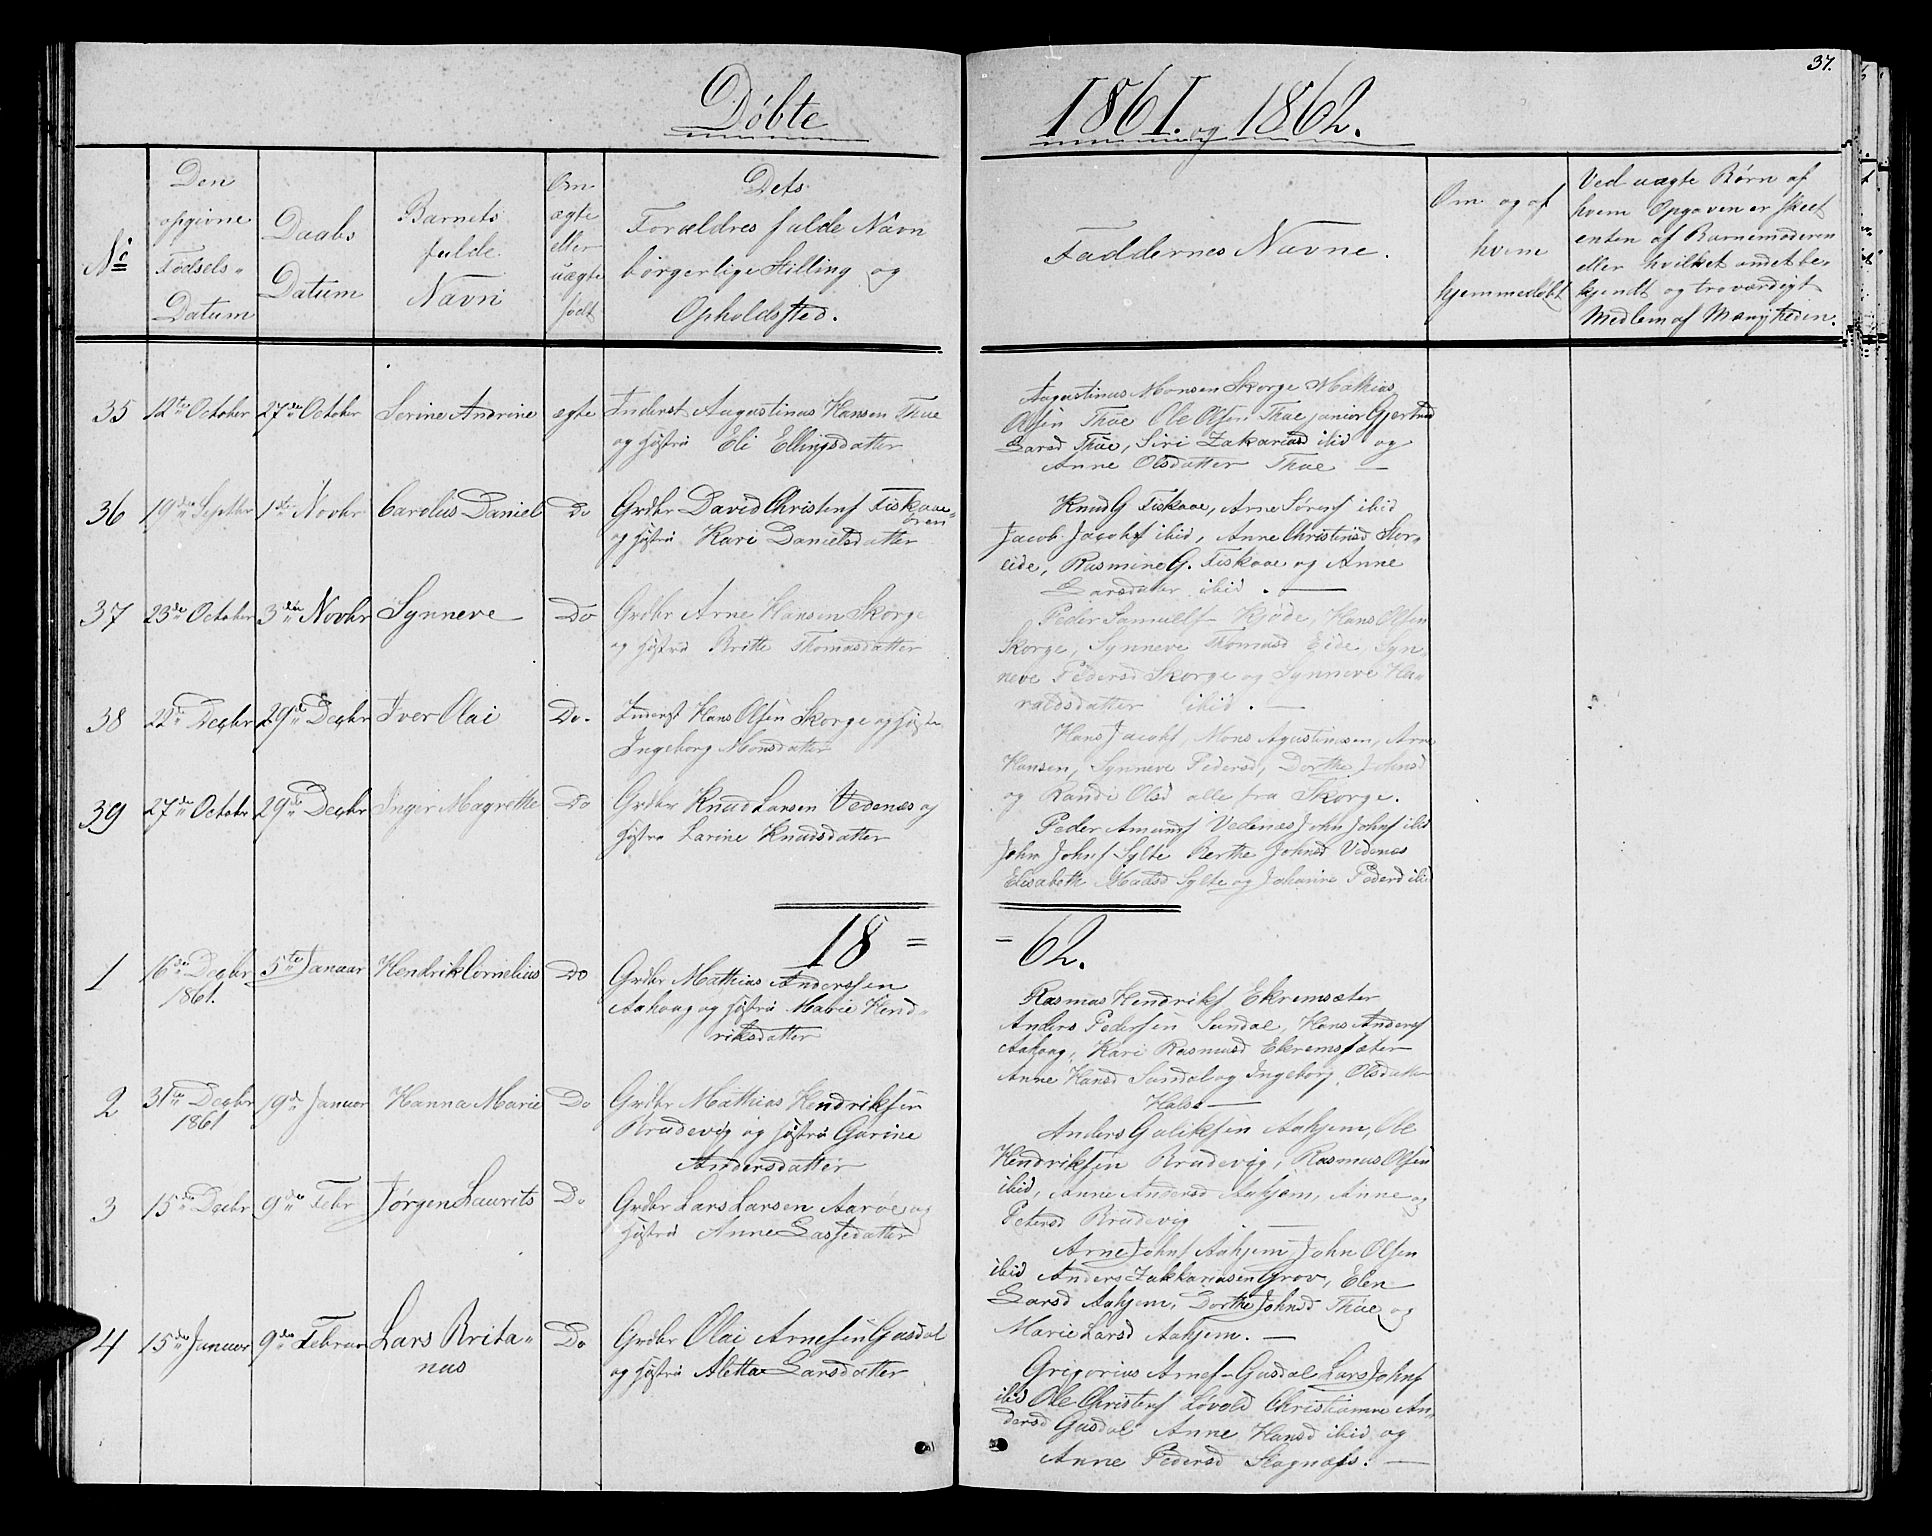 37.
Døbte
1861. og 1862.
No
Den
opgivne
Fødsels-
Datum
Daabs
Datum
Barnets
fulde
Navn
Om
ægte
eller
uægte
født
Dets
Forældres fulde Navn
borgerlige Stilling og
Opholdssted.
Faddernes Navne.
Om og af
hvem
hjemmedøbt
Ved uægte Børn af
hvem Opgaven er skeet
enten af Barnemoderen
eller hvilket andet be-
kjendt og troværdigt
Medlem af Menigheden.
35 12te October 27de October Serine Andrine ægte Inderst Augustinus Hansen Thue
og Hustru Eli Ellingsdatter
Augustinus Monsen Skorge Mathias
Olsen Thue Ole Olsen Thue junior Gjertrud
Larsd Thue, Siri Zakariasd ibid og
Anne Olsdatter Thue —
36 19de Septbr 1ste Novbr Carolus Daniel Do Grdbr David Christens Fiskaae-
ören
og Hustru Kari Danielsdatter
Knud G Fiskaae, Arne Sörens ibid
Jacob Jacobs ibid, Anne Christensd Stor-
eide, Rasmine G. Fiskaae og Anne
Larsdatter ibid. —
37 23de October 3die Novbr Synneve Do Grdbr Arne Hansen Skorge
og Hustru Britte Thomasdatter
Peder Samuels Kjöde, Hans Olsen
Skorge, Synneve Thomasd Eide, Syn-
neve Pedersd Skorge og Synneve Ha-
raldsdatter ibid. —
38 22de Decbr 29de Decbr Iver Olai Do. Inderst Hans Olsen Skorge og Hustru
Ingeborg Monsdatter
Hans Jacobs, Mons Agustinsen, Arne
Hansen, Synneve Pedersd, Dorthe Johnsd
og Randi Olsd alle fra Skorge.
39 27de October 29de Decbr Inger Magrethe Do Grdbr Knud Larsen Vedenæs og
Hustru Larine Knudsdatter
Peder Amunds Vedenæs John Johns ibid
John Johns Sylte Berthe Johnsd Vedenæs
Elisabeth Madsd Sylte og Johanne Pedersd ibid
18 = = 62.
1 16de Decbr 5te Januar Hendrik Cornelius Do Grdbr Mathias Anderssen
1861.
Aahaug og Hustru Marie Hend-
riksdatter
Rasmus Hendriks Ekremsæter
Anders Pedersen Sundal, Hans Anders
Aahaug, Kari Rasmusd Ekremsæter
Anne Hansd Sundal og Ingeborg Olsdatter
Halse —
2 31te Decbr 19de Januar Hanna Marie Do Grdbr Mathias Hendriksen
1861
Brudevig og Hustru Gurine
Andersdatter
Anders Guliksen Aahjem, Ole
Hendriksen Brudevig, Rasmus Olsen
ibid, Anne Andersd Aahjem, Anne og
Petersd Brudevig —
3 15de Decbr 9de Febr Jørgen Laurits Do Grdbr Lars Larsen Aarve og
Hustru Anne Lassedatter
Arne Johns Aahjem John Olsen
ibid Anders Zakkariasen Grov, Elen
Larsd Aahjem, Dorthe Johnsd Thue og
Marie Larsd Aahjem. —
4 15de Januar 9de Februar Lars Brita- Do Grdbr Olai Arnesen Gusdal
nus
og Hustru Aletta Larsdatter
Grigorius Arnes Gusdal Lars Johns
ibid Ole Christens Løvold Christianne An-
dersd Gusdal Anne Hansd ibid og
Anne Pedersd Stagnæs. —